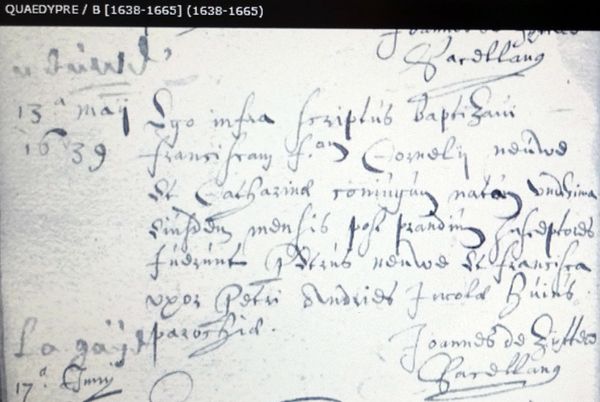 QUAEDYPRE / B [1638-1665] (1638-1665)
Joannes de
Sacellanus
13.ª maij
1639
Ego infra scriptus baptizavi
franciscam f.am Cornelij neuwe
et Catharinæ coniugum natam undecima
eiusdem mensis post prandium susceptores
fuerunt Petrus neuwe et francisca
uxor Petri Andries Incolæ huius
parochiæ.
Joannes de Zitter
Sacellanus
17.ª Junij